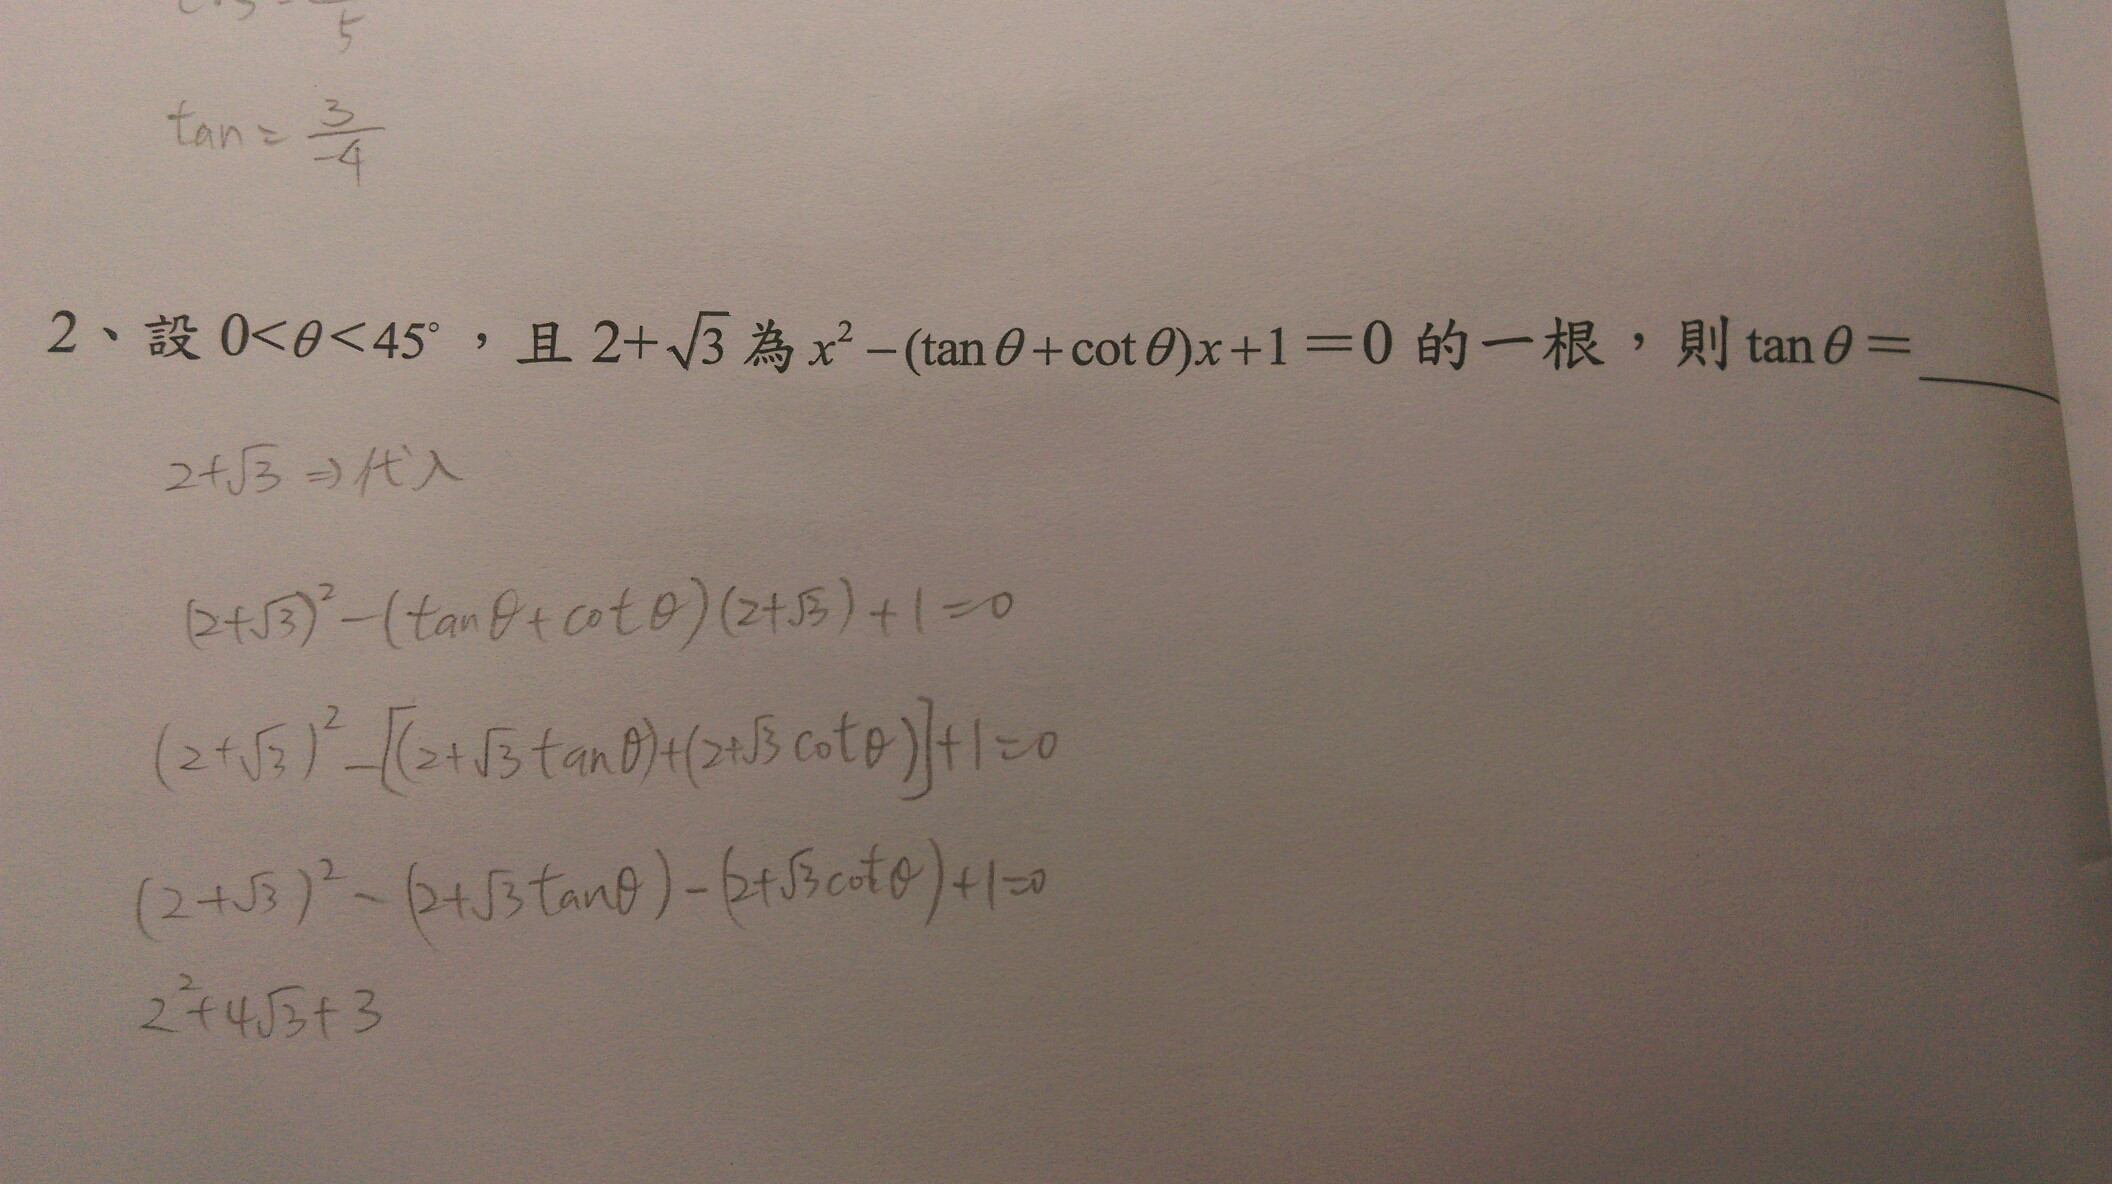 5
tan = 3/-4
2、設 0<θ<45°，且 2+√3 為 x² −(tan θ + cot θ)x+1＝0 的一根，則 tan θ＝____
2+√3 ⇒ 代入
(2+√3)² −(tanθ + cot θ)(2+√3) + 1 = 0
(2+√3)² −[(2+√3 tanθ)+(2+√3 cotθ)]+1=0
(2+√3)² − (2+√3 tanθ) − (2+√3 cotθ)+1=0
2²+4√3+3